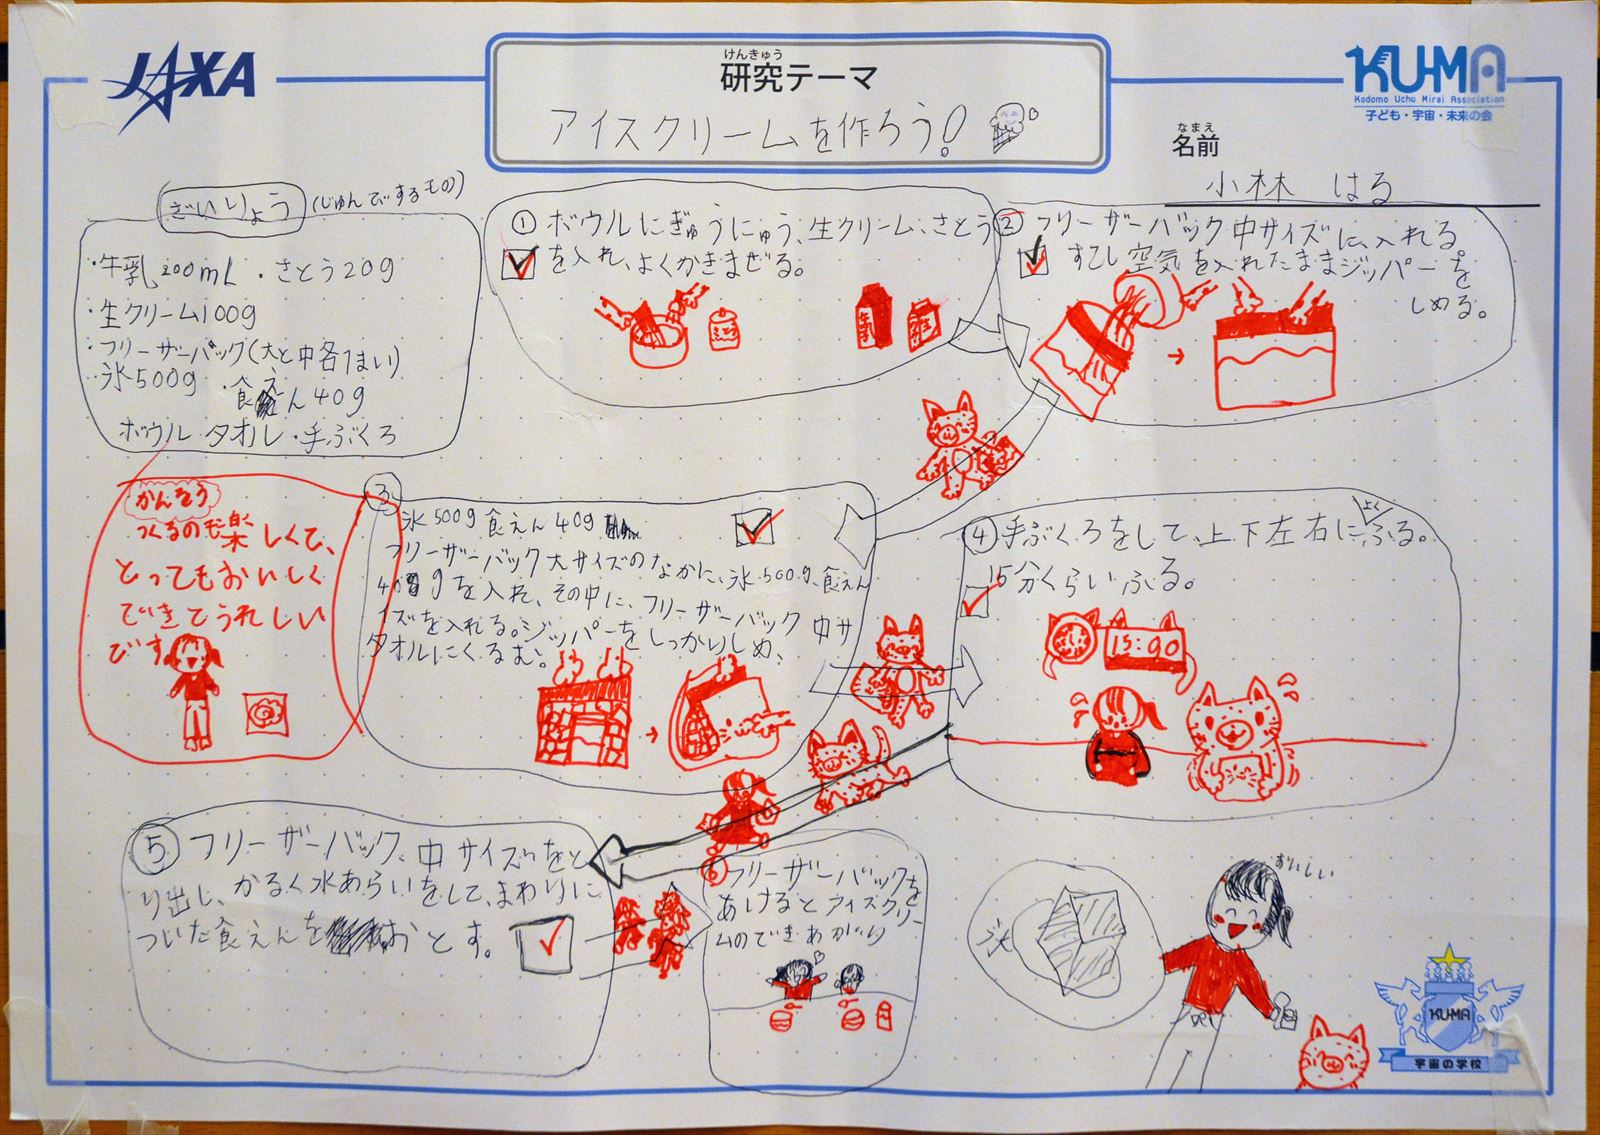 JAXA
けんきゅう
研究テーマ
アイスクリームを作ろう!
KUMA
Kodomo Uchu Mirai Association
子ども・宇宙・未来の会
なまえ
名前
小林 はる
ざいりょう(じゅんびするもの)
・牛乳200mL ・さとう20g
・生クリーム100g
・フリーザーバッグ(大と中各1まい)
・氷500g ・食えん40g
ボウル タオル・手ぶくろ
① ボウルにぎゅうにゅう、生クリーム、さとう
を入れ、よくかきまぜる。
さとう
牛乳
② フリーザーバック中サイズに入れる。
すこし空気を入れたままジッパーを
しめる。
かんそう
つくるのも楽しくて、
とってもおいしく
できてうれしい
です。
③
氷500g 食えん40g
フリーザーバック大サイズのなかに、氷500g、食えん
40gを入れ、その中に、フリーザーバック中サ
イズを入れる。ジッパーをしっかりしめ、
タオルにくるむ。
④ 手ぶくろをして、上下左右によくふる。
15分くらいふる。
15:00
⑤ フリーザーバック、中サイズをと
り出し、かるく水あらいをして、まわりに
ついた食えんをおとす。
⑥ フリーザーバックを
あけるとアイスクリー
ムのできあがり
氷
おいしい
KUMA
宇宙の学校